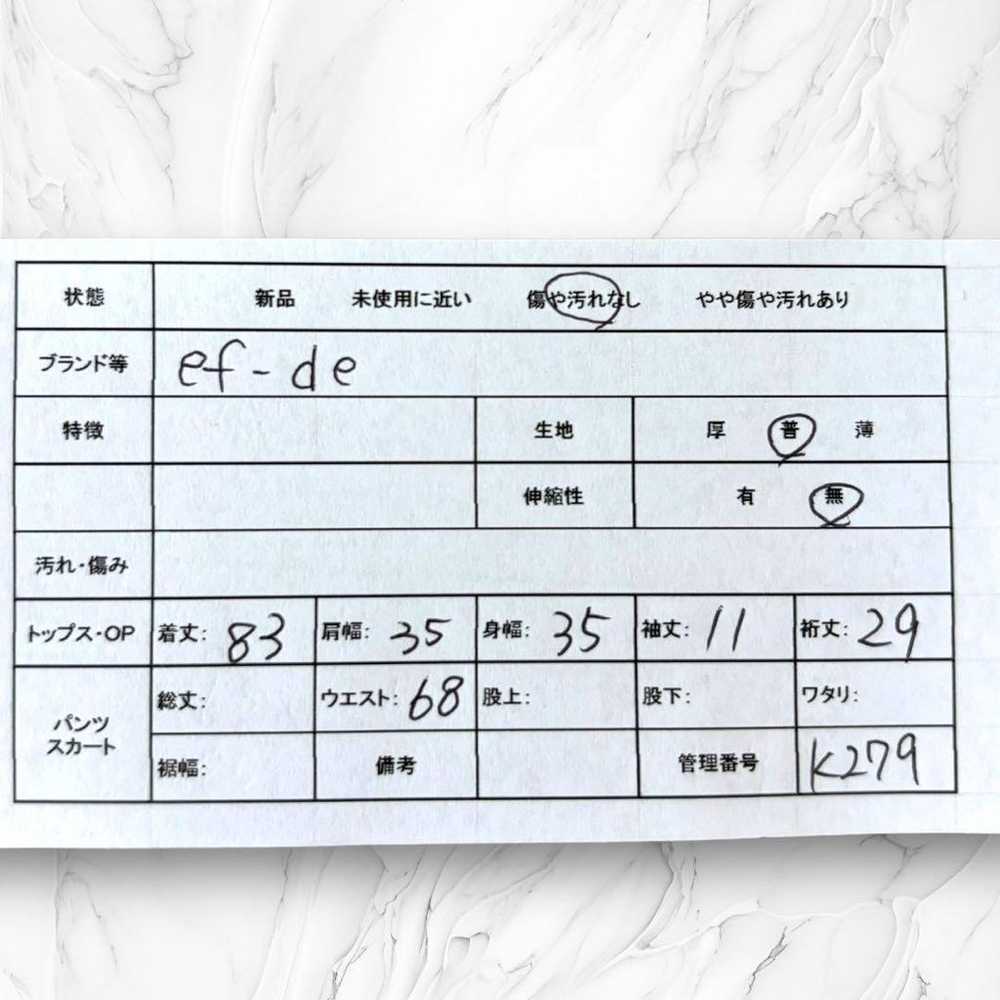 状態 新品 未使用に近い 傷や汚れなし やや傷や汚れあり
ブランド等 ef-de
特徴 生地 厚 普 薄
伸縮性 有 無
汚れ・傷み
トップス・OP 着丈: 83 肩幅: 35 身幅: 35 袖丈: 11 裄丈: 29
パンツ スカート 総丈: ウエスト: 68 股上: 股下: ワタリ:
裾幅: 備考 管理番号 K279